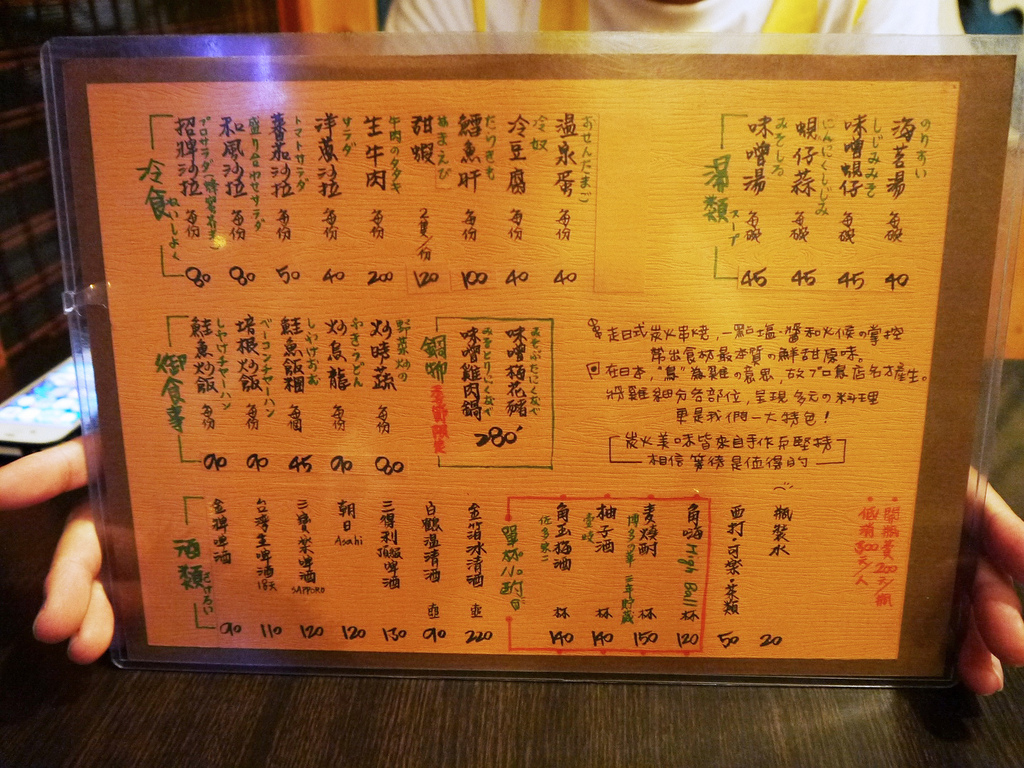 冷食
れいしょく
招牌沙拉 每份 80
和風沙拉 每份 80
盛り合わせサラダ
蕃茄沙拉 每份 50
トマトサラダ
洋蔥沙拉 每份 40
サラダ
生牛肉 每份 200
牛肉のタタキ
甜蝦 2隻/份 120
あまえび
鱈魚肝 每份 100
たらきも
冷豆腐 每份 40
冷奴
溫泉蛋 每份 40
おせんたまご
湯類
スープ
味噌湯 每碗 45
みそしる
蜆仔蒜 每碗 45
にんにくしじみ
味噌蜆仔 每碗 45
しじみみそ
海苔湯 每碗 40
のりすい
御食事
鮭魚炒飯 每份 90
しゃけチャーハン
培根炒飯 每份 90
ベーコンチャーハン
鮭魚飯糰 每個 45
しゃけおむ
炒烏龍 每份 90
やきうどん
炒時蔬 每份 80
野菜炒め
鍋物
季節限定
味噌雞肉鍋
みそとりにくなべ
味噌梅花豬
みそぶたにくなべ
280
走日式炭火串燒,一點塩、醬和火候の掌控
帶出食材最本質の鮮甜原味。
在日本,"鳥"為雞の意思,故プロ鳥店名才產生。
將雞細分各部位,呈現多元の料理
更是我們一大特色!
炭火美味皆來自手作布堅持
相信等待是值得的
酒類
金牌啤酒 90
台灣生啤酒 18天 110
三寶樂啤酒 SAPPORO 120
朝日 Asahi 120
三得利頂級啤酒 130
白鶴溫清酒 壺 90
金箔冰清酒 壺 220
單杯小酌
角玉梅酒 杯 140
佐多宗二
柚子酒 杯 140
麦燒酎 杯 150
博多の華 三年貯蔵
角嗨 High Ball 杯 120
西打・可樂・茶類 50
瓶裝水 20
・開瓶費200元/瓶
・低消300元/人